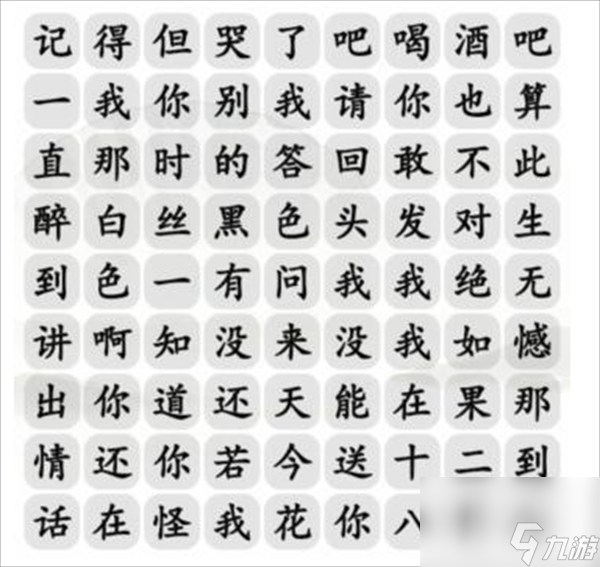 记得但哭了吧喝酒吧
一我你别我请你也算
直那时的答回敢不此
醉白丝黑色头发对生
到色一有问我我绝无
讲啊知没来没我如憾
出你道还天能在果那
情还你若今送十二到
话在怪我花你八
九游